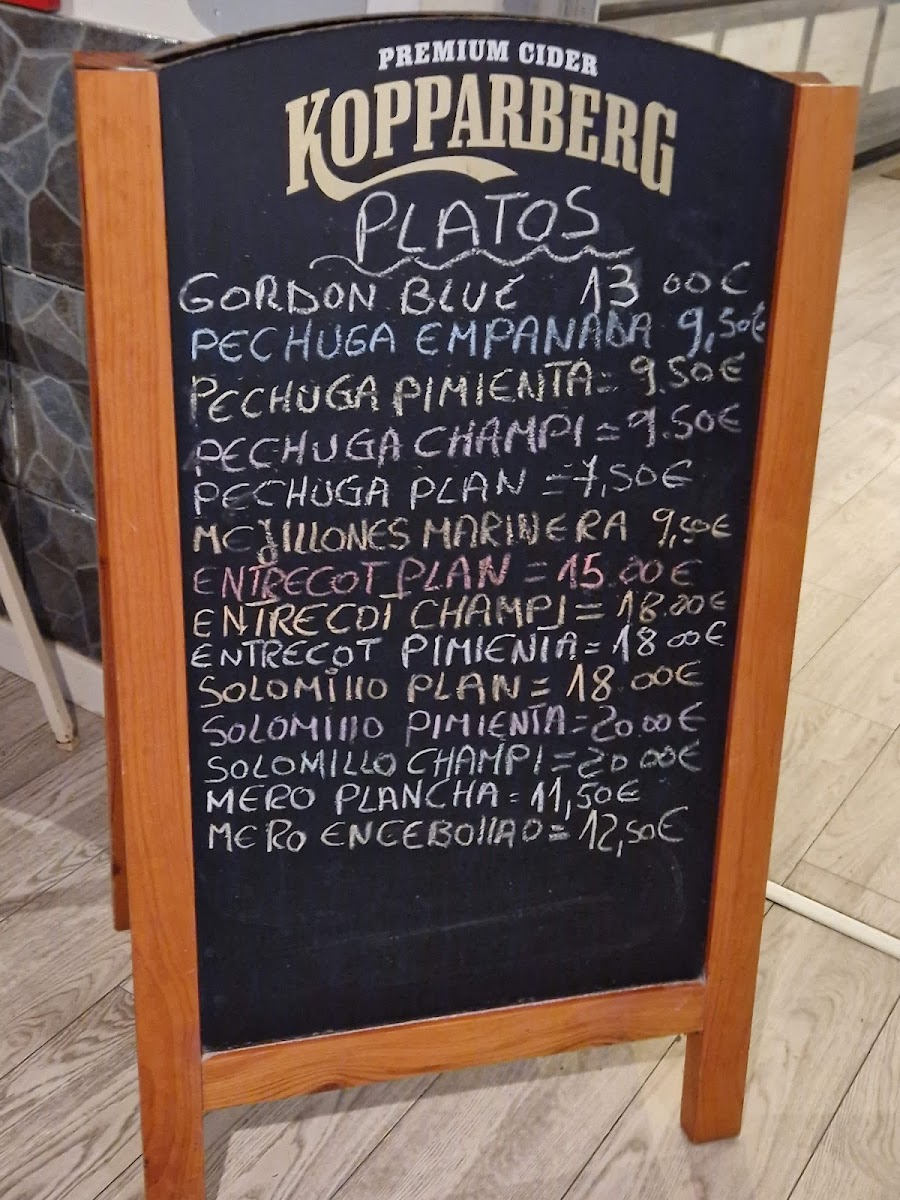 PREMIUM CIDER
KOPPARBERG
PLATOS
GORDON BLUE 13 00€
PECHUGA EMPANADA 9,50€
PECHUGA PIMIENTA = 9.50€
PECHUGA CHAMPI = 9.50€
PECHUGA PLAN = 7,50€
MEJILLONES MARINERA 9,50€
ENTRECOT PLAN = 15.00€
ENTRECOT CHAMPI = 18.00€
ENTRECOT PIMIENTA = 18 00€
SOLOMILLO PLAN = 18.00€
SOLOMILLO PIMIENTA = 20.00€
SOLOMILLO CHAMPI = 20 00€
MERO PLANCHA = 11,50€
MERO ENCEBOLLAO = 12,50€